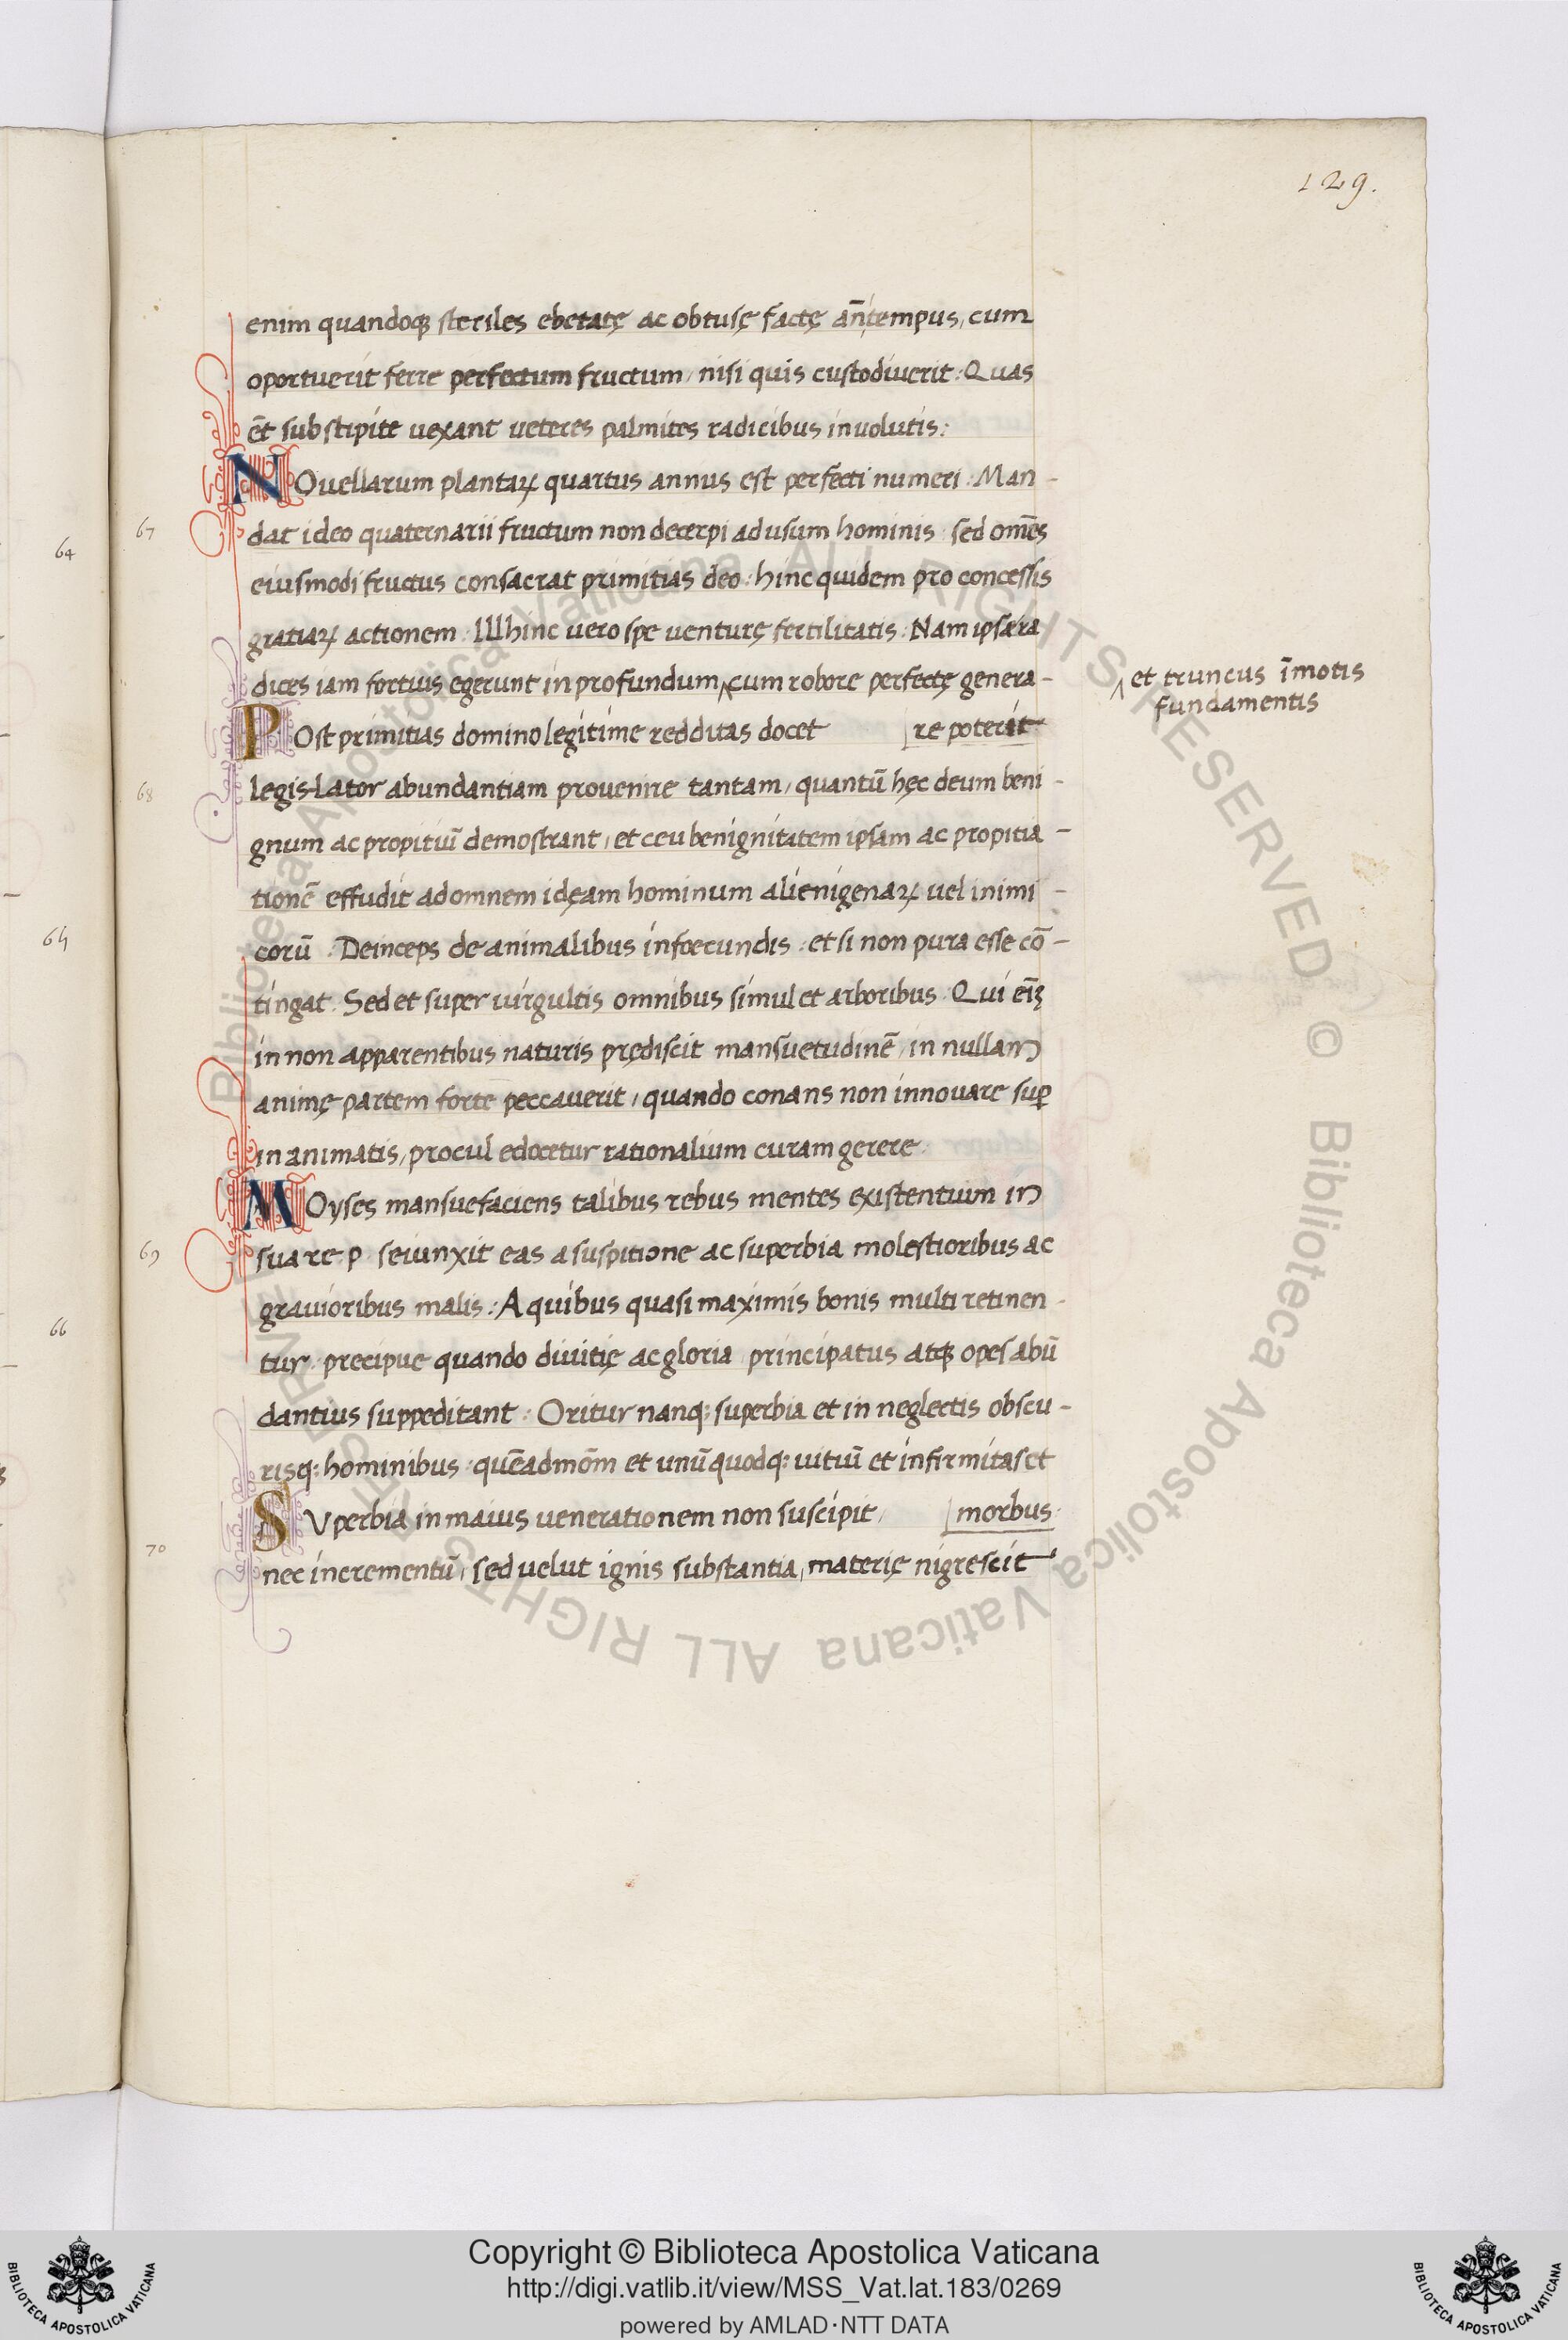 129.
enim quandoq; steriles ebetatę ac obtusę factę an̄ tempus, cum
oportuerit ferre perfectum fructum, nisi quis custodiuerit: Quas
et̄ sub stipite uexant ueteres palmites radicibus inuolutis:
NOuellarum plantaꝝ quartus annus est perfecti numeri: Man-
67
dat ideo quaternarii fructum non decerpi ad usum hominis: sed om̄es
eiusmodi fructus consacrat primitias deo: hinc quidem pro concessis
gratiaꝝ actionem: Illhinc uero spe uenturę fertilitatis: Nam ipsæ ra
dices iam fortius egerunt in profundum, ^ cum robore perfectę genera-
^ et truncus īmotis
fundamentis
POst primitias domino legitime redditas docet [re poterit
68
legis-Lator abundantiam prouenire tantam, quantū hęc deum beni-
gnum ac propitiū demostrant, et ceu benignitatem ipsam ac propitia-
tionē effudit ad omnem idęam hominum alienigenaꝝ uel inimi-
corū: Deinceps de animalibus infœcundis: et si non pura esse cō-
tingat: Sed et super uirgultis omnibus simul et arboribus: Qui eiꝫ̄
in non apparentibus naturis prędiscit mansuetudinē, in nullam
animę partem forte peccauerit, quando conans non innouare suꝑ
inanimatis, procul edocetur rationalium curam gerere:
MOyses mansuefaciens talibus rebus mentes existentium in
69
sua re.p. seiunxit eas a suspitione ac superbia molestioribus ac
grauioribus malis: A quibus quasi maximis bonis multi retinen-
tur: precipue quando diuitię ac gloria principatus atq; opes abū
dantius suppeditant: Oritur nanq; superbia et in neglectis obscu-
risq; hominibus: quēadmōm et unūquodq; uitiū et infirmitas et
SVperbia in maius uenerationem non suscipit, [morbus:
70
nec incrementū, sed uelut ignis substantia, materię nigrescit
64
64
66
Biblioteca Apostolica Vaticana ALL RIGHTS RESERVED © Biblioteca Apostolica Vaticana ALL RIGHTS RESERVED
Copyright © Biblioteca Apostolica Vaticana
http://digi.vatlib.it/view/MSS_Vat.lat.183/0269
powered by AMLAD·NTT DATA
BIBLIOTECA APOSTOLICA VATICANA
BIBLIOTECA APOSTOLICA VATICANA